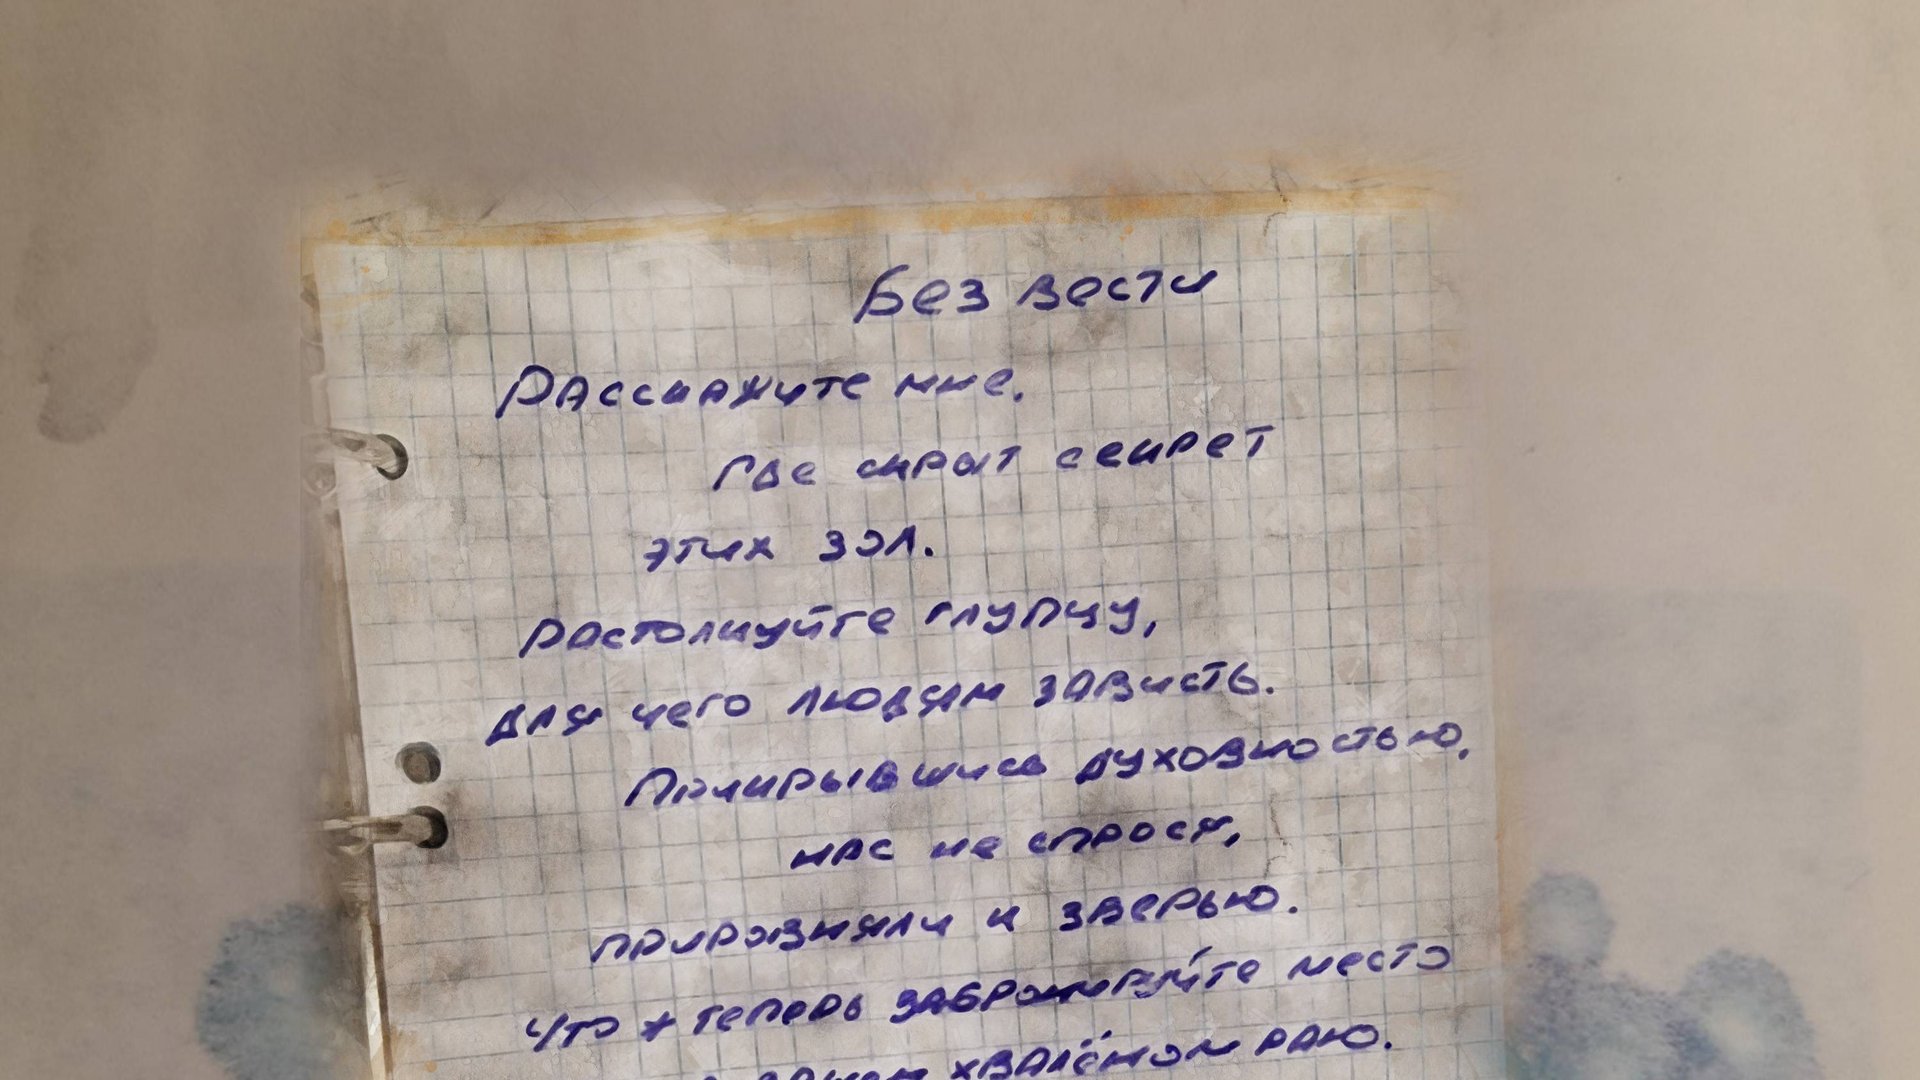 Без вести
Расскажите мне.
Где скрыт секрет
этих зол.
Растолкуйте глупцу,
для чего людям зависть.
Прикрывшись духовностью,
нас не спрося,
приравняли к зверью.
Что ж теперь забронируйте место
хвалёном раю.